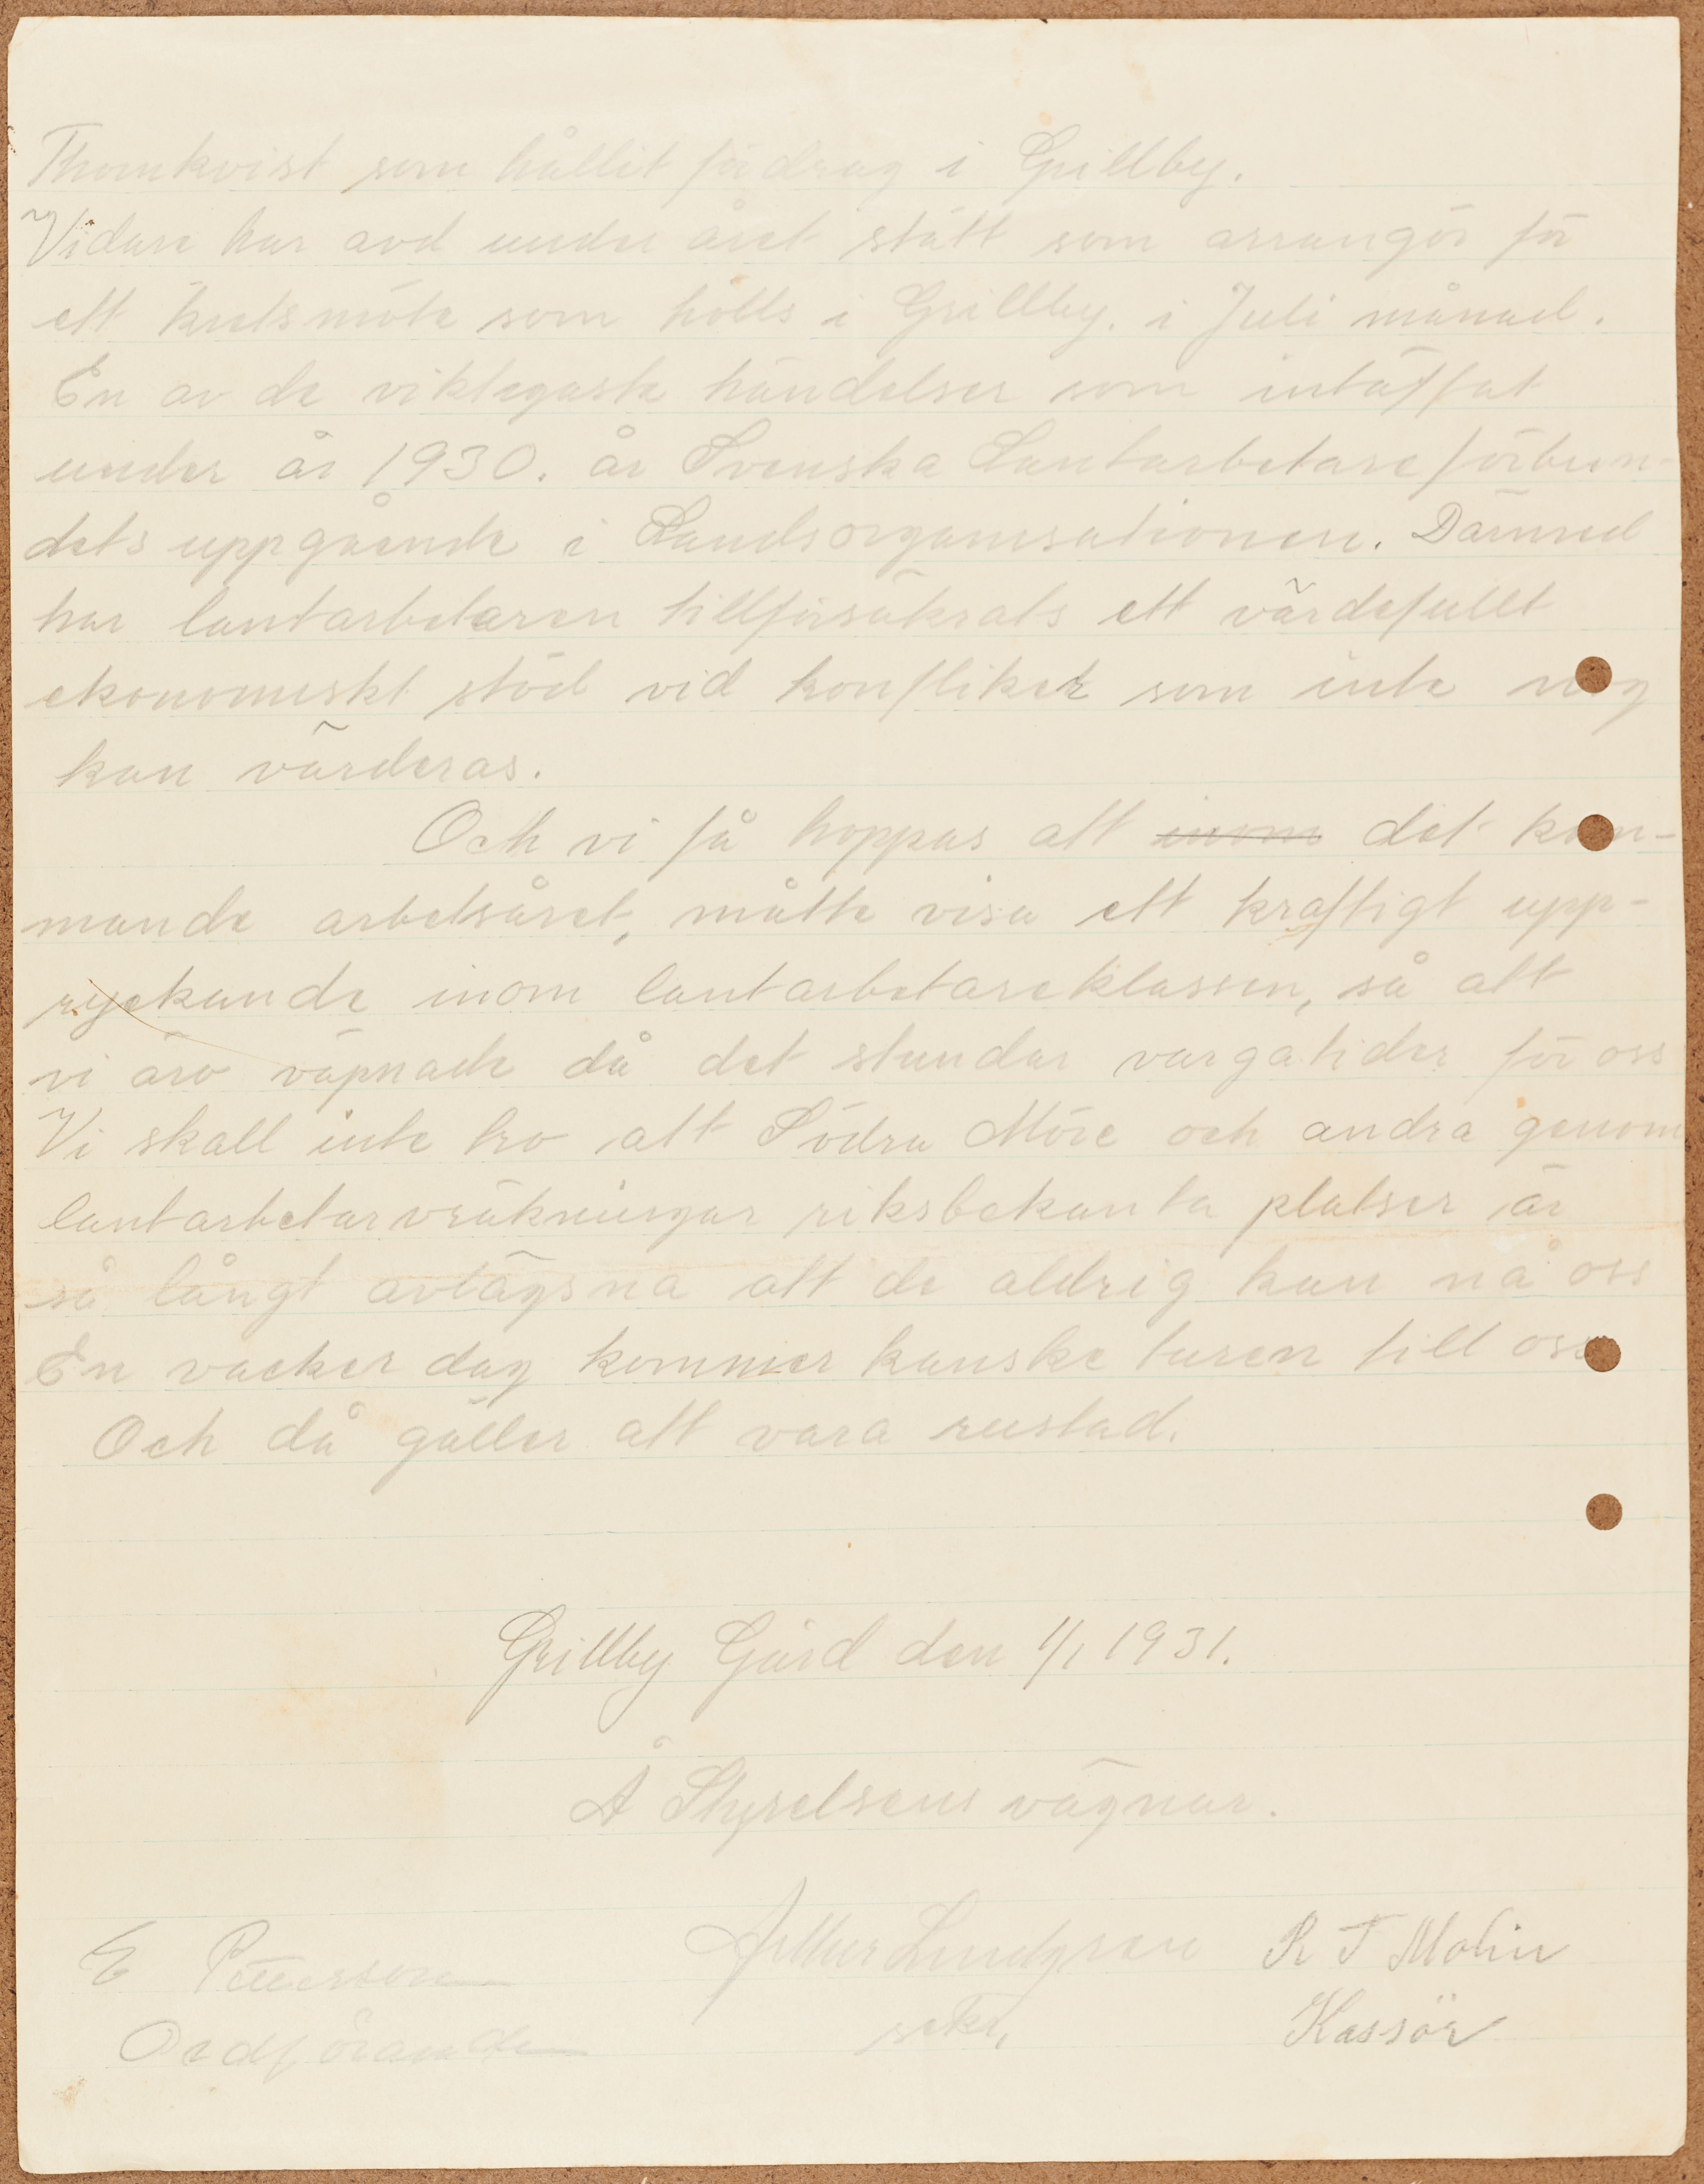 Thornkvist som hållit fördrag i Grillby.
Vidare har avd under året stått som arrangör för
ett kretsmöte som hölls i Grillby. i Juli månad.
En av de viktegaste händelser som inträffat
under år 1930. är Svenska Lantarbetareförbun-
dets uppgående i Landsorganisationen. Därmed
har lantarbetaren tillförsäkrats ett värdefullt
ekonomiskt stöd vid konflikter som inte nog
kan värderas.
Och vi få hoppas att inom det kom-
mande arbetsåret, måtte visa ett kraftigt upp-
ryckande inom lantarbetareklassen, så att
vi äro väpnade då det stundar vargatider för oss
Vi skall inte tro att Södra Möre och andra genom
lantarbetarvräkningar riksbekanta platser är
så långt avlägsna att de aldrig kan nå oss
En vacker dag kommer kanske turen till oss
Och då gäller att vara rustad.
Grillby Gård den 1/1 1931.
Å Styrelsens vägnar.
E Petterson Arthur Lindgren R T Molin
Ordförande sekr, Kassör